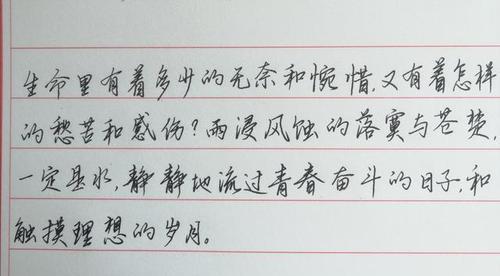 生命里有着多少的无奈和惋惜,又有着怎样
的愁苦和感伤?雨浸风蚀的落寞与苍楚,
一定是水,静静地流过青春奋斗的日子,和
触摸理想的岁月。